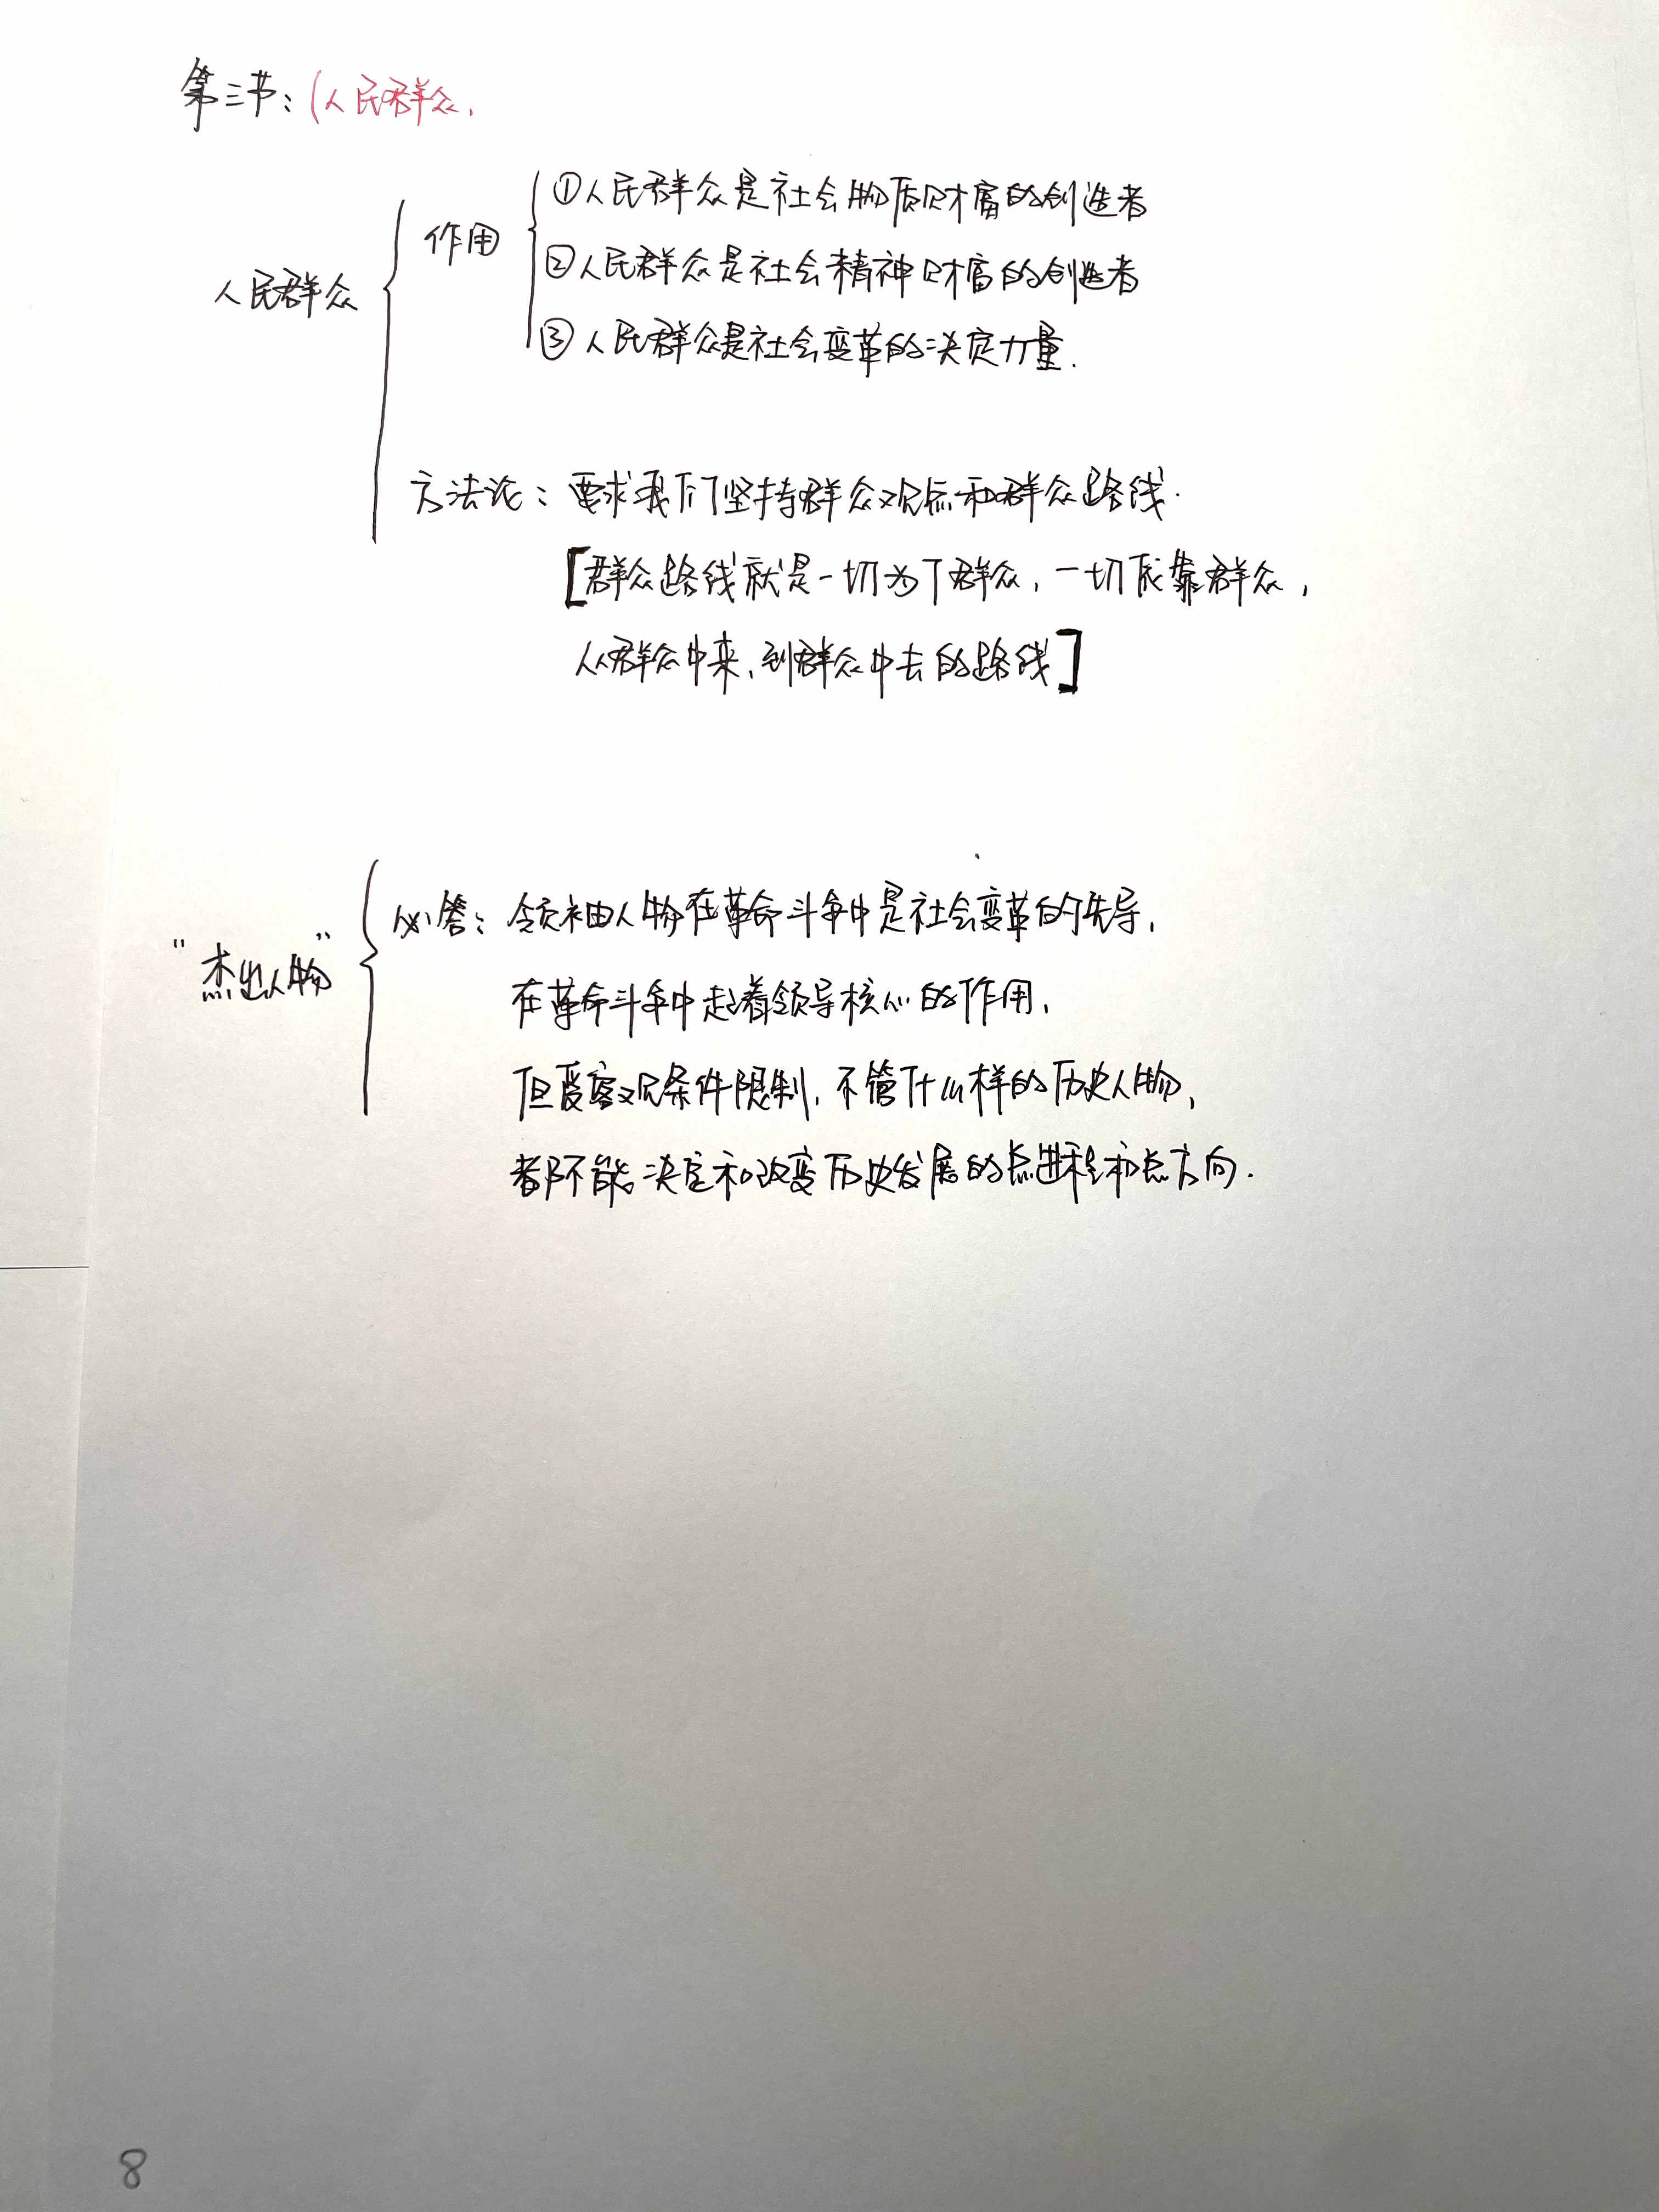 第三节：(人民群众.
人民群众
作用
①人民群众是社会物质财富的创造者
②人民群众是社会精神财富的创造者
③人民群众是社会变革的决定力量.
方法论：要求我们坚持群众观点和群众路线.
[群众路线就是一切为了群众，一切依靠群众，
从群众中来，到群众中去的路线]
"杰出人物"
必答：领袖人物在革命斗争中是社会变革的先导，
在革命斗争中起着领导核心的作用，
但受客观条件限制，不管什么样的历史人物，
都不能决定和改变历史发展的总进程和总方向.
8